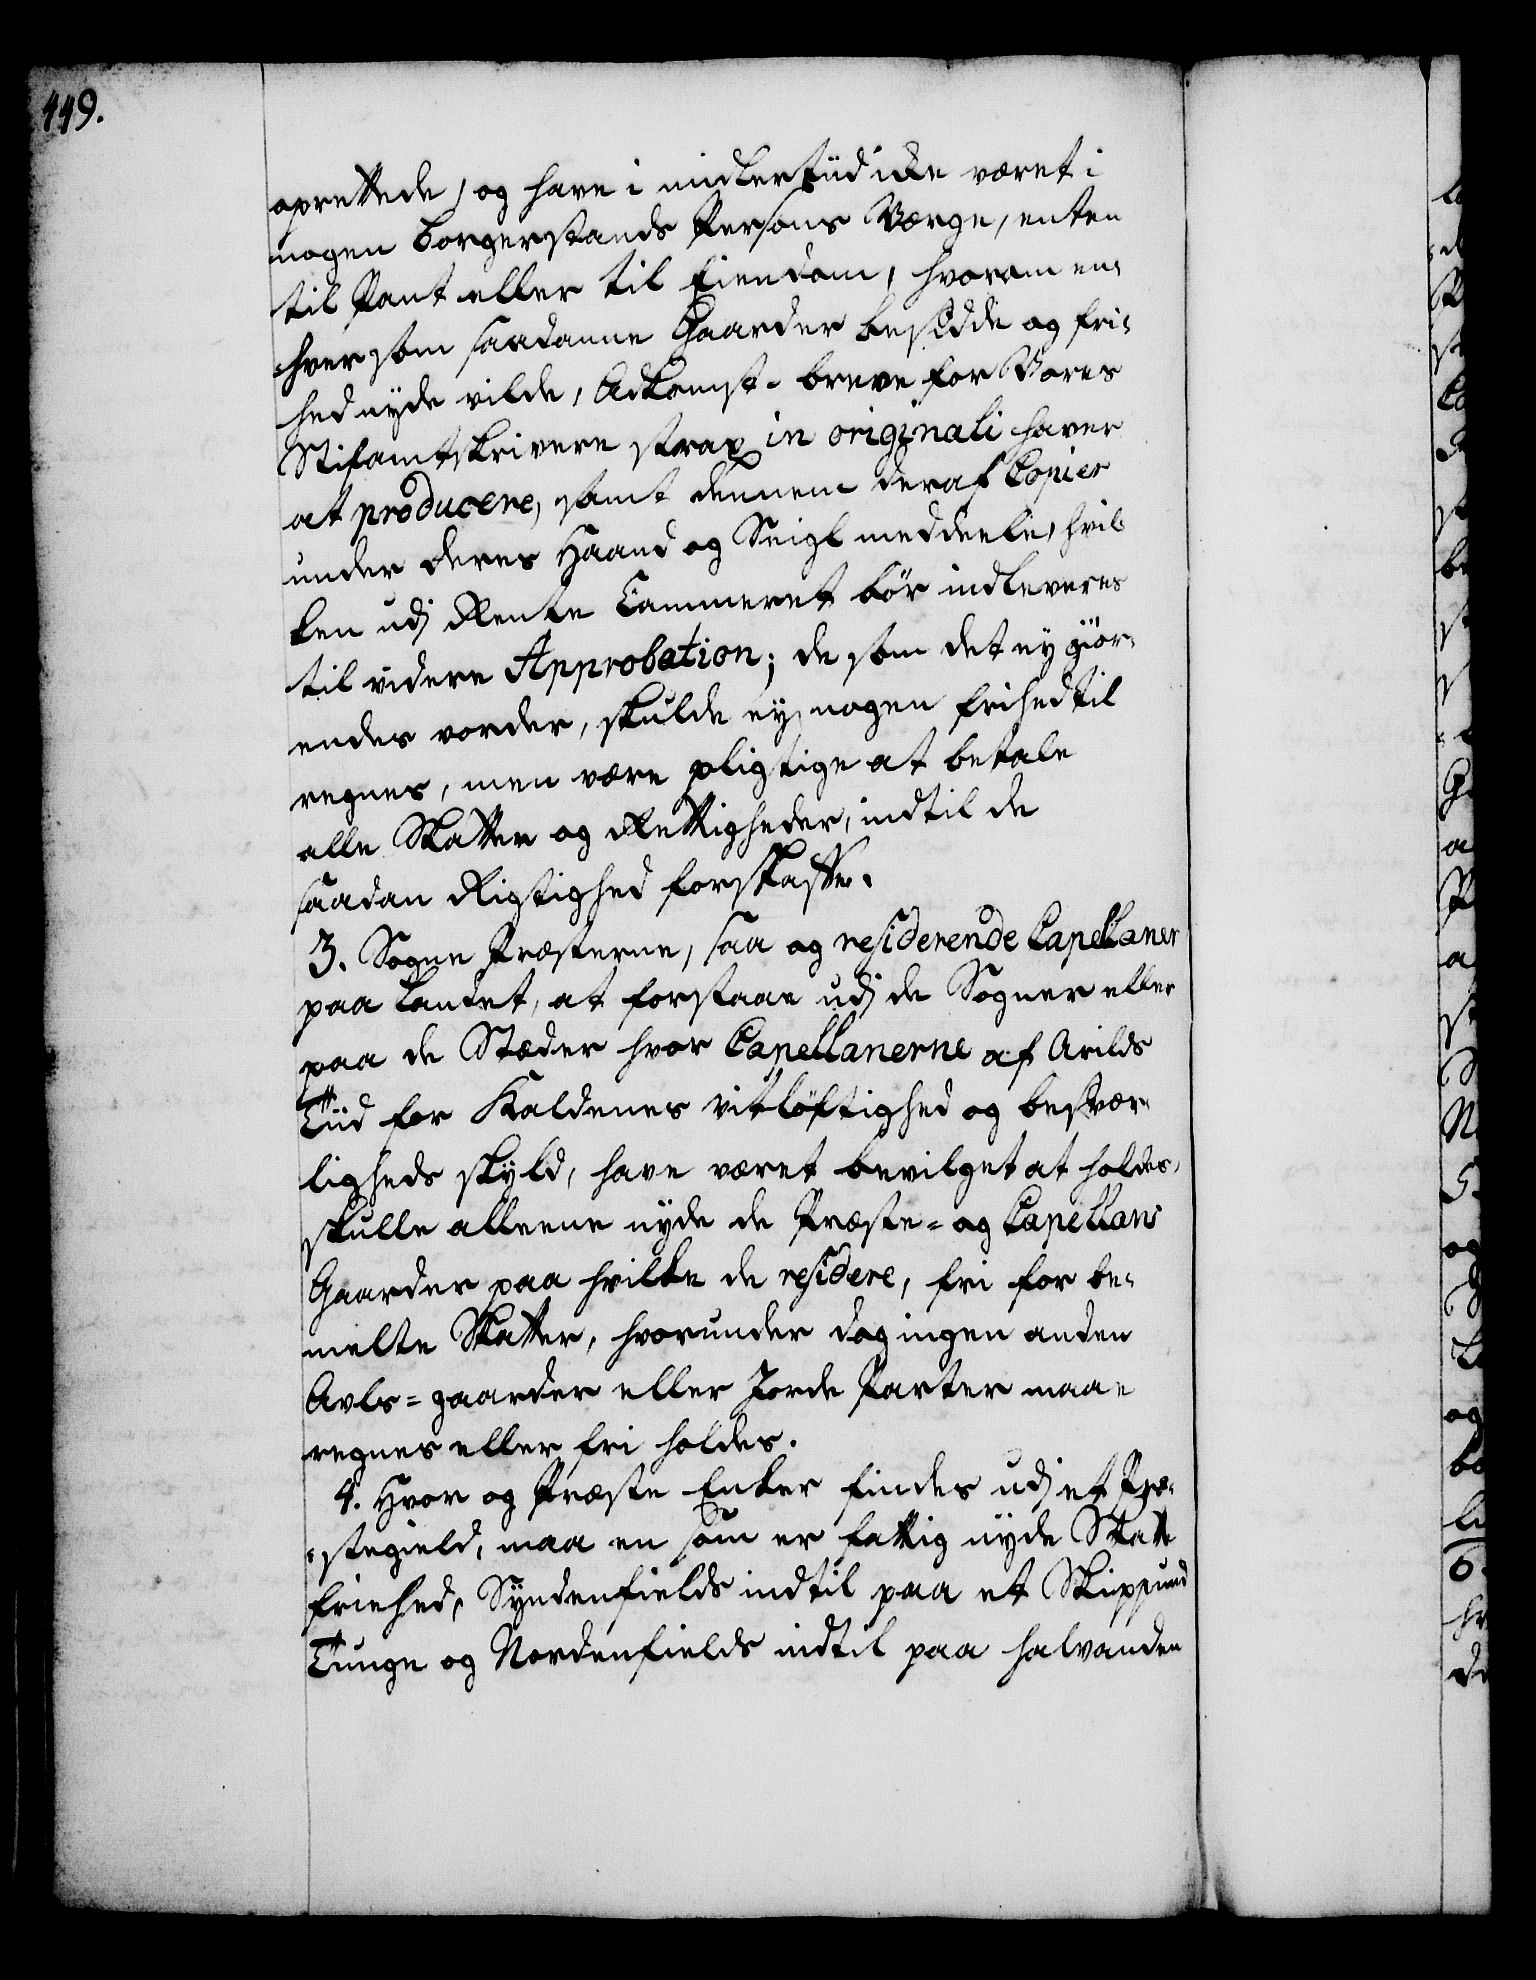 449.
oprettede, og have i midlertiid icke været i
nogen Borgerstands Persons Værge, enten
til Pant eller til Eiendom, hvorom en-
-hver som saadanne Gaarder besidde og fri-
hed nyde vilde, Adkomst-breve for Vores
Stiftamtskrivere strax in originali haver
at producere, samt dennem deraf Copier
under deres Haand og Seigl meddeele, hvil-
ken udj Rente Cammeret bør indleveres
til videre Approbation; de som det ey giør-
endes vorder, skulde ey nogen frihed til
regnes, men være pligtige at betale
alle Skatter og Rettigheder, indtil de
saadan Rigtighed forskaffer.
3. Sogne Præsterne, saa og residerende Capellaner
paa Landet, at forstaae udj de Sogner eller
paa de Stæder hvor Capellanerne af Arilds
Tiid for Kaldenes vitløftighed og besvær-
ligheds skyld, have været bevilget at holdes,
skulle alleene nyde de Præste- og Capellans
Gaarder paa hvilke de residere, fri for be-
melte Skatter, hvorunder dog ingen anden
Avls-gaarder eller Jorde Parter maae
regnes eller fri holdes.
4. Hvor og Præste Enker findes udj et Præ-
-stegield, maa en som er fattig nyde Skatte
friehed, Syndenfields indtil paa et Skippund
Tunge og Nordenfields indtil paa halvanden